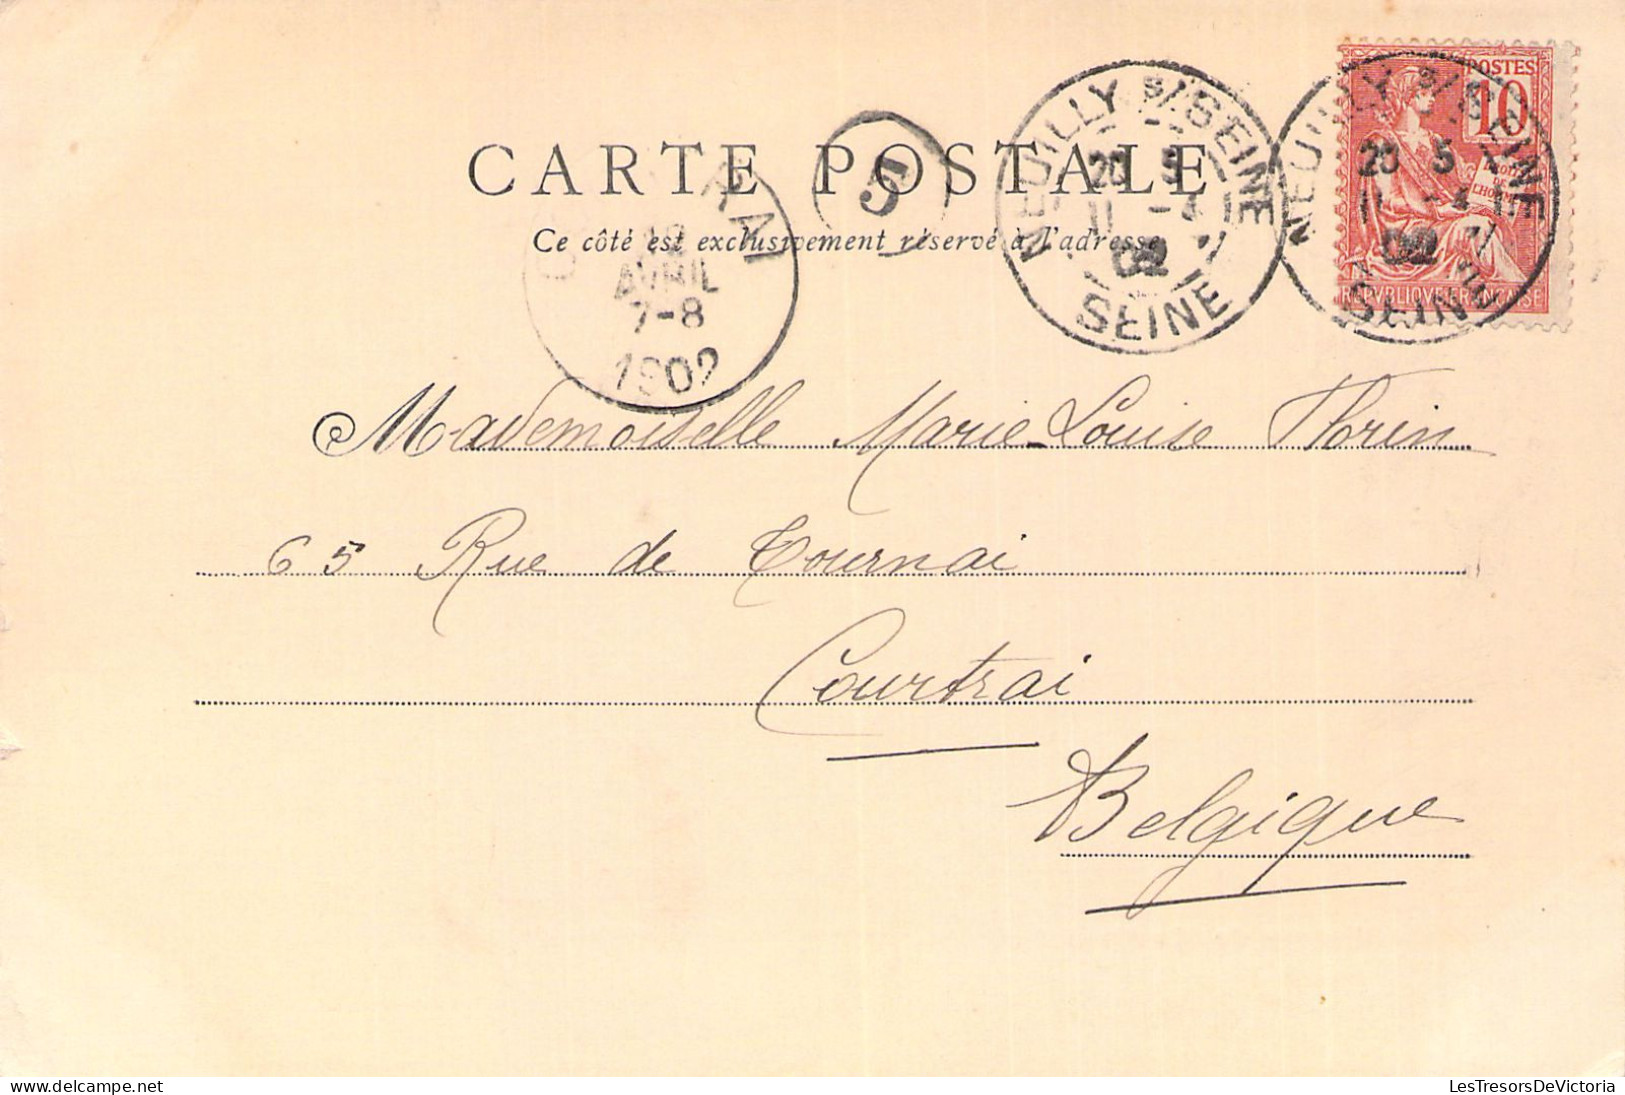 CARTE POSTALE
Ce côté est exclusivement réservé à l'adresse
NEUILLY S/SEINE
20 5
11 -4
02
SEINE
NEUILLY S/SEINE
20 5
11 -4
02
SEINE
POSTES
10
DROITS
DE
L'HOMME
REPVBLIQVE FRANCAISE
5
12
AVRIL
7-8
1902
Mademoiselle Marie-Louise Florin
65 Rue de Tournai
Courtrai
Belgique
LesTresorsDeVictoria